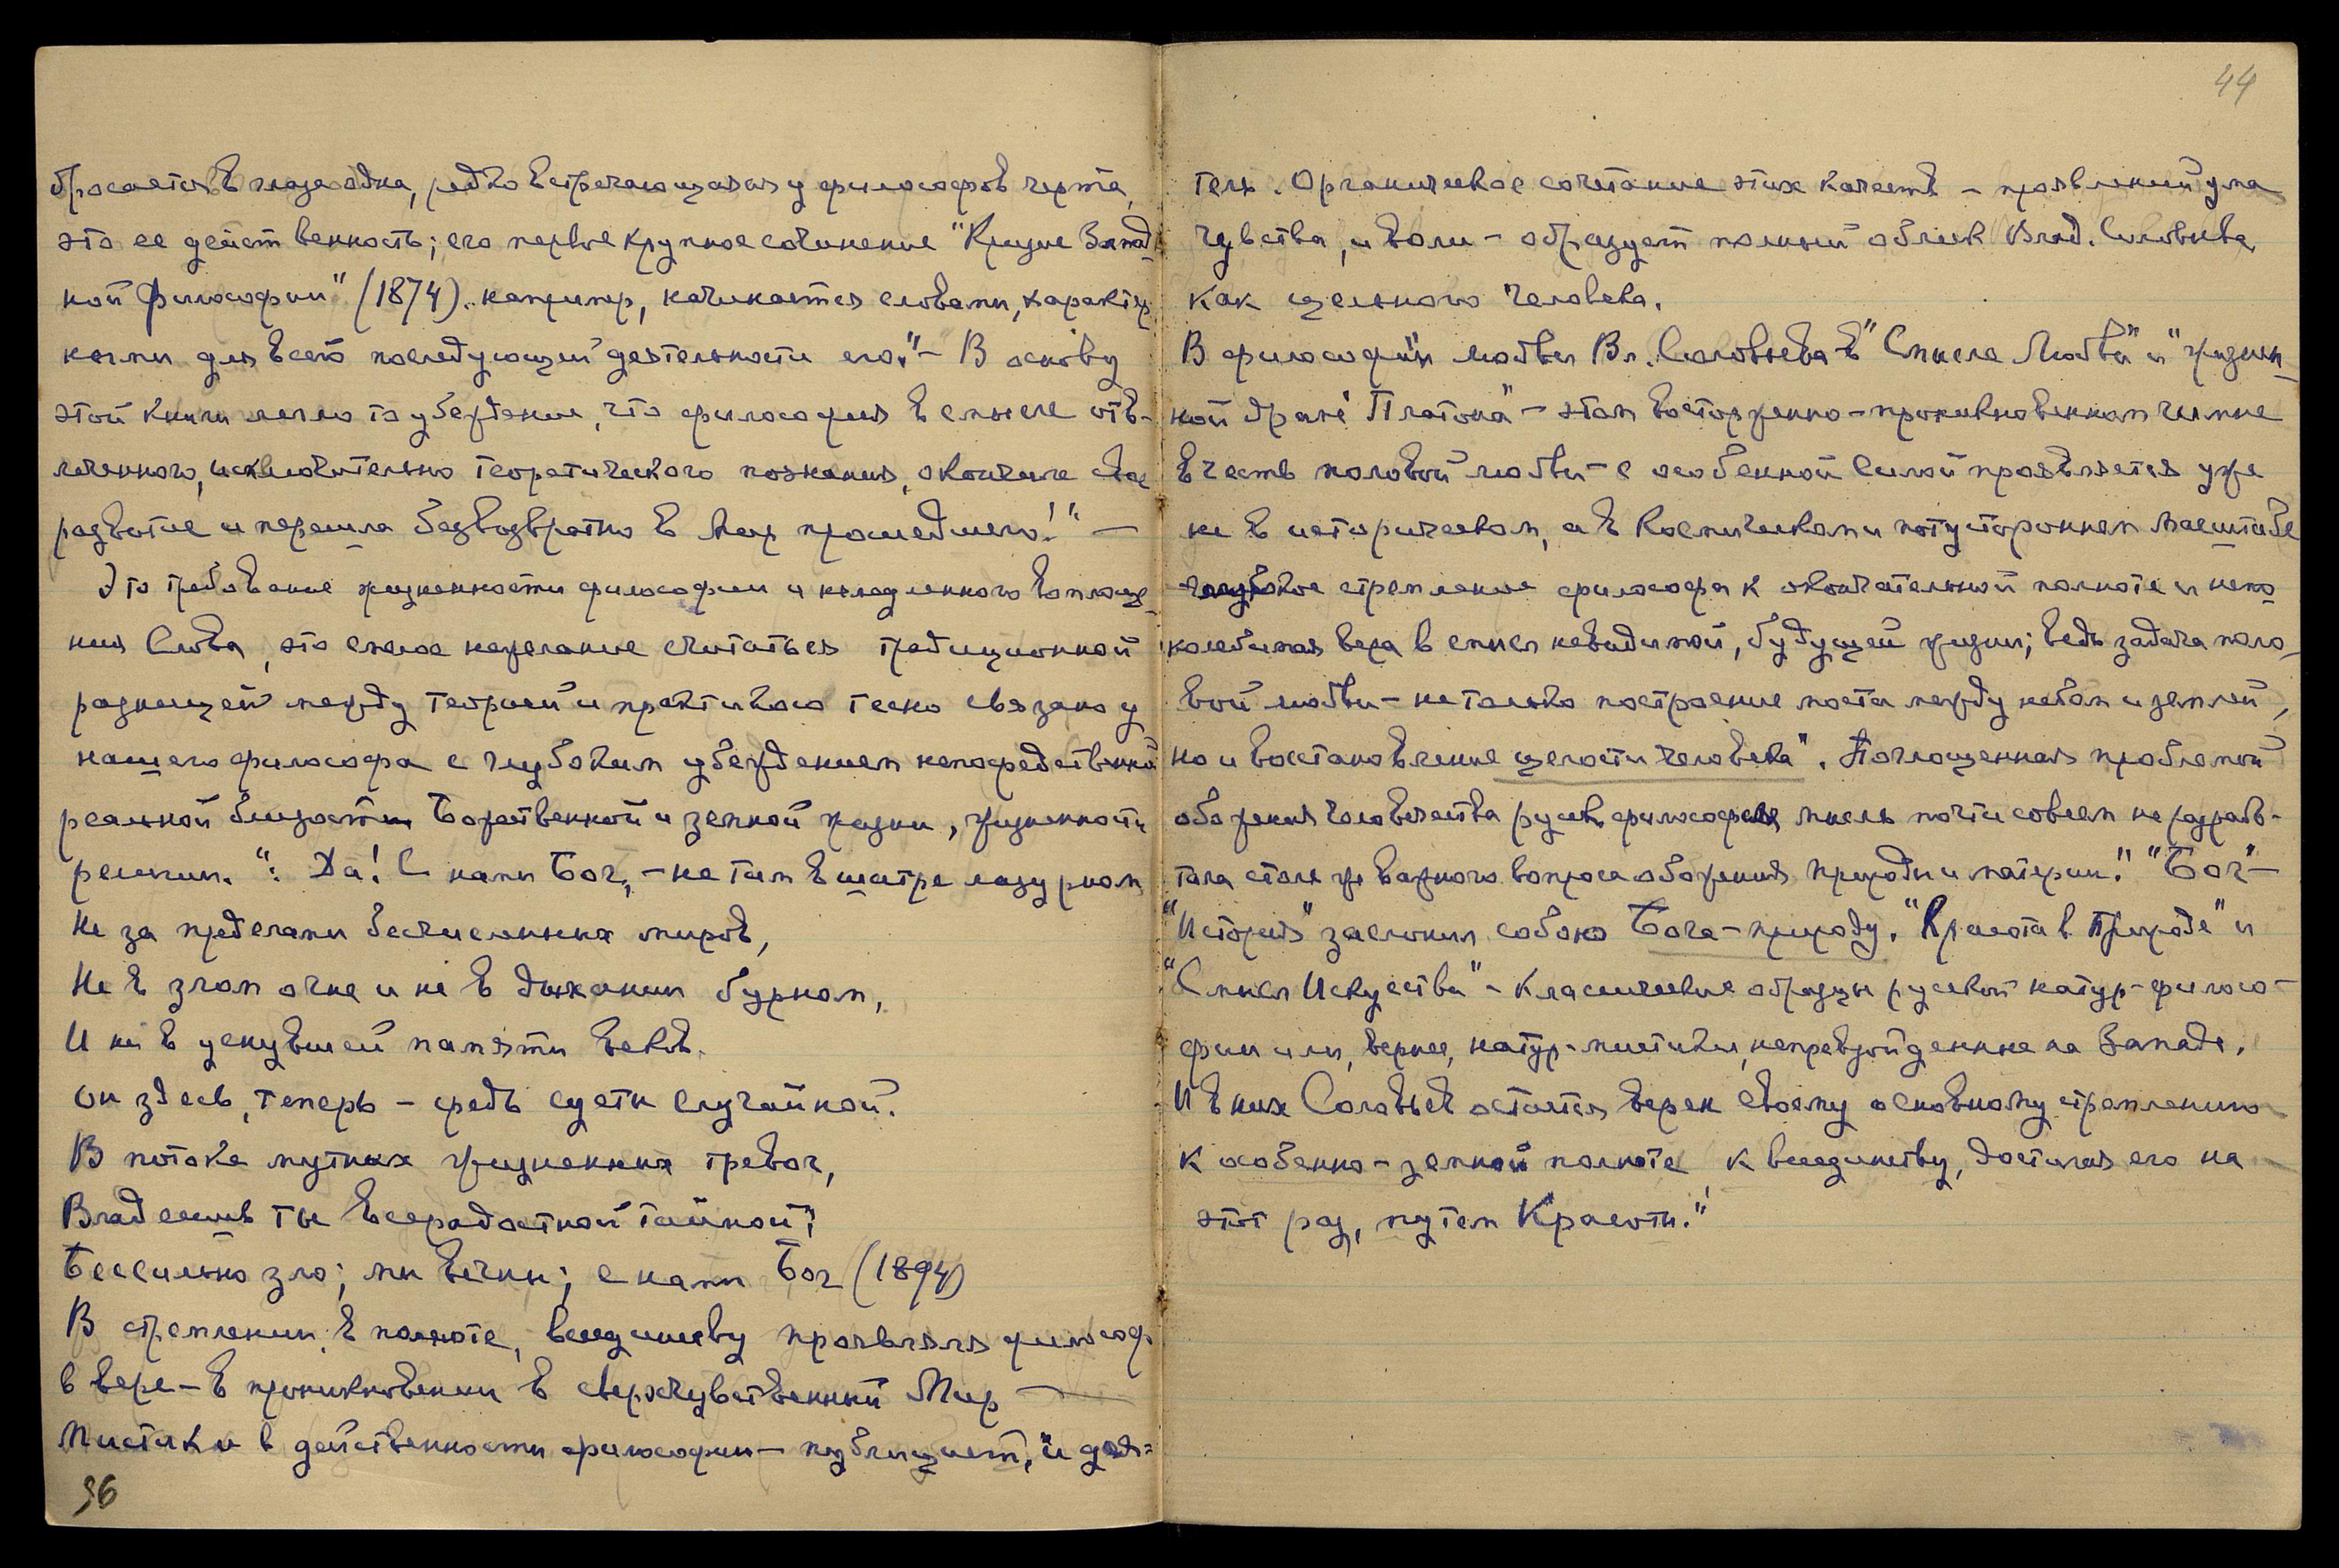 бросается в глаза одна, редко встречающаяся у философов черта,
это ее действенность; его первое крупное сочинение "Кризис Запад-
ной Философии" (1874). например, начинается словами, характер
ными для всей последующей деятельности его: "– В основу
этой книги легло то убеждение, что философия в смысле отв-
леченного, исключительно теоретического познания, окончила свое
развитие и перешла безвозвратно в мир прошедшего!" —
Это требование жизненности философии и немедленного воплоще-
ния Слова, это смелое нежелание считаться традиционной
разницей между теорией и практикою тесно связано у
нашего философа с глубоким убеждением непосредственной
реальной близости Божественной и земной жизни, жизненности
религии. ": Да! С нами Бог, – не там в шатре лазурном
Не за пределами бесчисленных миров,
Не в злом огне и не в дыхании бурном,
И не в уснувшей памяти веков.
Он здесь, теперь – средь суеты случайной.
В потоке мутных жизненных тревог,
Владеешь ты всерадостной тайной;
Бессильно зло; мы вечны; с нами Бог (1894)
В стремлении к полноте, всеединству проявлялся философ
в вере – в проникновении в сверхчувственный Мир —
Мистик и в действенности философии – публицист, "и дея=
96
44
тель. Органическое сочетание этих качеств – проявлений ума
чувства, и воли – образует полный облик Влад. Соловьева,
как цельного человека.
В философии любви Вл. Соловьева в "Смысле Любви" и "жизнен_
ной драме Платона" – этом восторженно-проникновенном гимне
в честь половой любви – с особенной силой проявляется уже
не в историческом, а в космическом и потустороннем масштабе
глубокое стремление философа к окончательной полноте и непо
колебимая вера в смысл невидимой, будущей жизни; ведь задача поло_
вой любви – не только построение моста между небом и землей,
но и восстановление целости человека". Поглощенная проблемой
обожения человечества русск. философская мысль почти совсем не разраб-
тала столь же важного вопроса обожения природы и материи." "Бог" –
"История" заслонил собою Бога-природу. "Красота в Природе" и
"Смысл Искусства" – Классические образцы русской натур-филосо-
фии или, вернее, натур-мистики, непревзойденные на Западе.
И в них Соловьев остается верен своему основному стремлению
к особенно-земной полноте к всеединству, достигая его на
этот раз, путем Красоты."